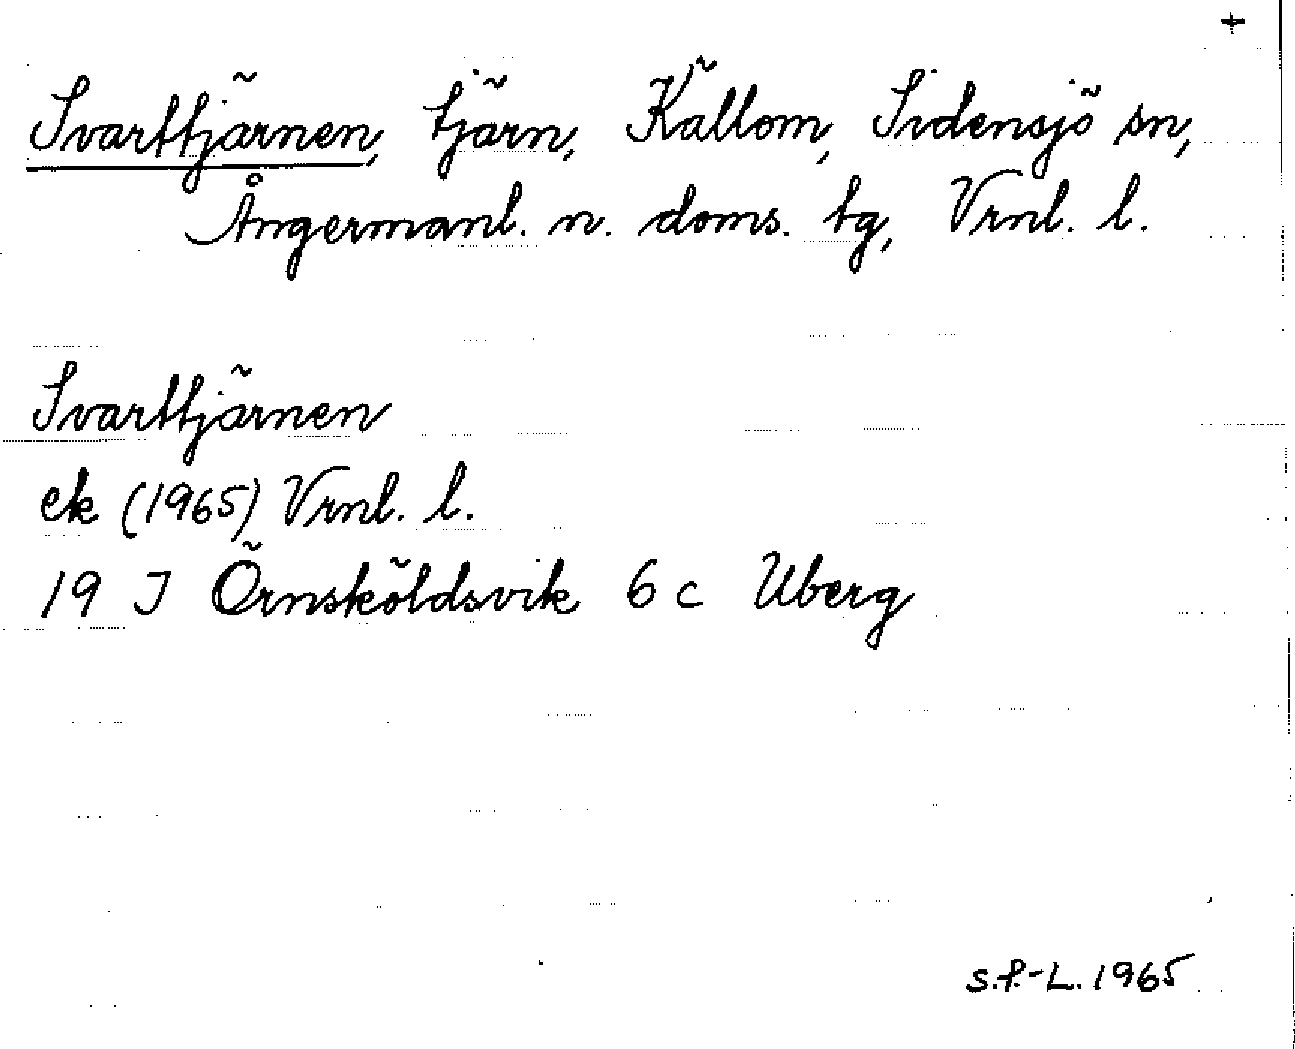 +
Svarttjärnen, tjärn, Källom, Sidensjö sn,
Ångermanl. n. doms. tg, Vrnl. l.
Svarttjärnen
ek (1965) Vrnl. l.
19 J Örnsköldsvik 6 c Uberg
S.f.-L. 1965